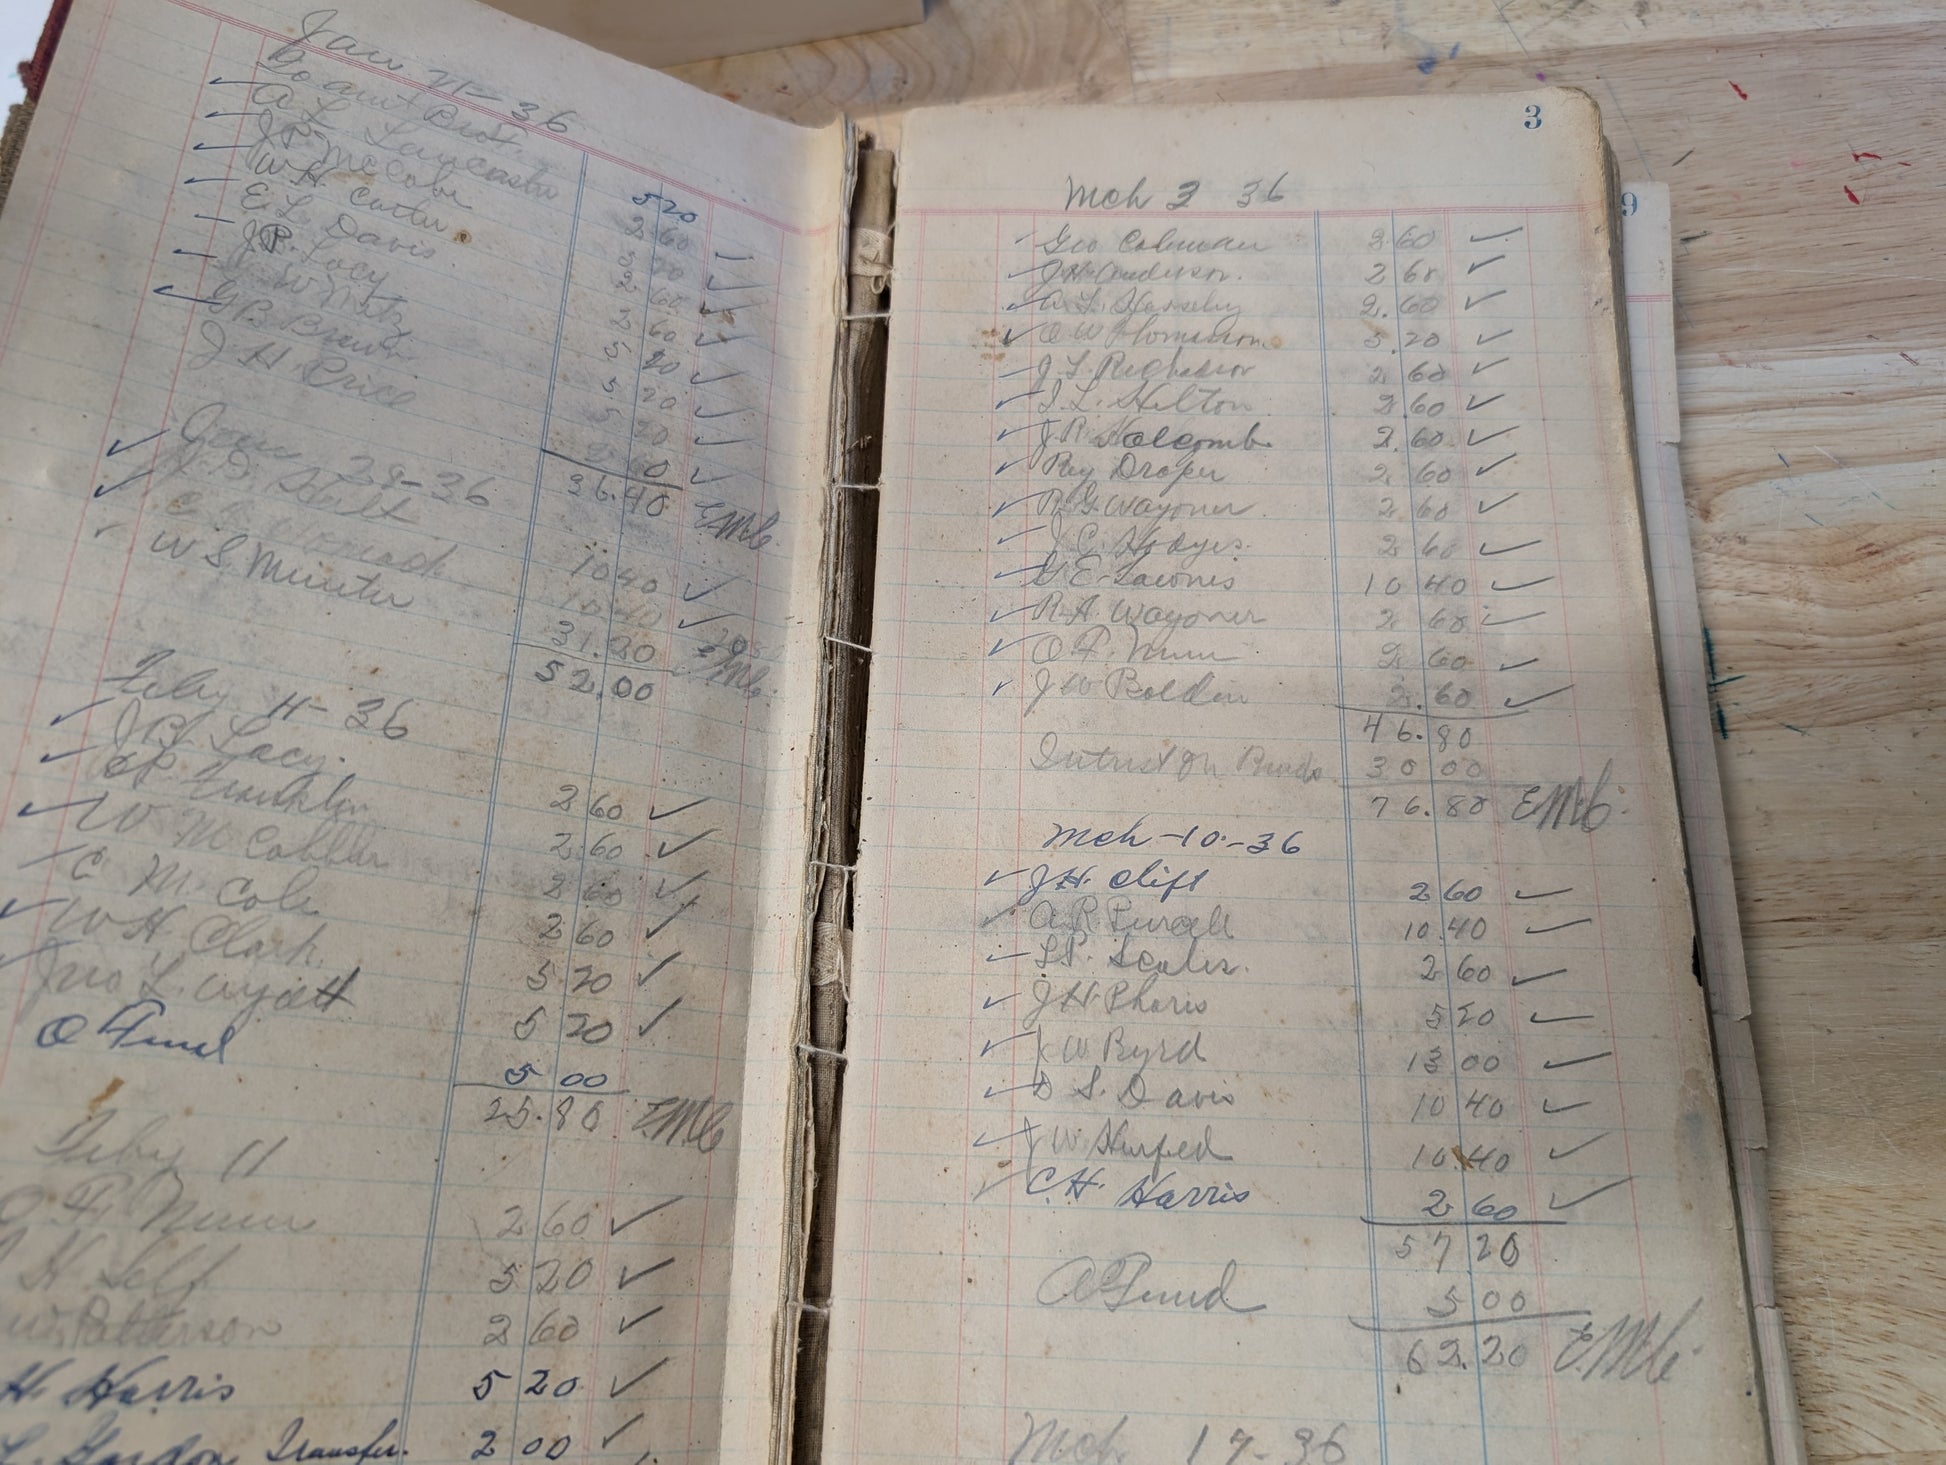 36
Bros. 5 20
A L Lancaster 2 60
J P McCabe 5 20
W H Carter 2 60
E. L. Davis. 2 60
J R. Lacy 5 20
W 5 20
G B Brown 5 20
J H Price 2 60
36.40 EMC
28-36
J. D. Hilt 10 40
10 40
W S Minter 31.20
EMC
52.00
Feby 4-36
J R Lacy. 2 60
Franklin 2 60
W M Cobbler 2 60
C M. Cole 2 60
W H. Clark. 5 20
Jno L. Wyatt 5 20
O Fund 5 00
25.80 EMC
Feby 11
O F. Nunn 2 60
H Self 5 20
W. Patterson 2 60
H. Harris 5 20
Gordon Transfer. 2 00
3
Mch 3 36
Geo Coleman 2 60
J H Anderson. 2 60
A. L. 2.60
O W 5.20
J L Richardson 2 60
S. L. Hilton 2 60
J R Holcomb. 2 60
Roy Draper 2 60
R G Wagoner. 2 60
J C Hodges. 2 60
G E 10 40
R A Wagoner 2 60
O F. Nunn 2 60
J W Bolden 2.60
46.80
Intrust on Bonds. 30 00
76.80 EMC
Mch-10-36
J H. Clift 2 60
A R Purcell 10.40
Scales. 2 60
J H. Pharis 5 20
J W Byrd 13 00
D S. Davis 10 40
J W. Hurfed 10.40
C. H. Harris 2 60
57 20
O Fund 5 00
62.20 E.M.C.
Mch 17-36